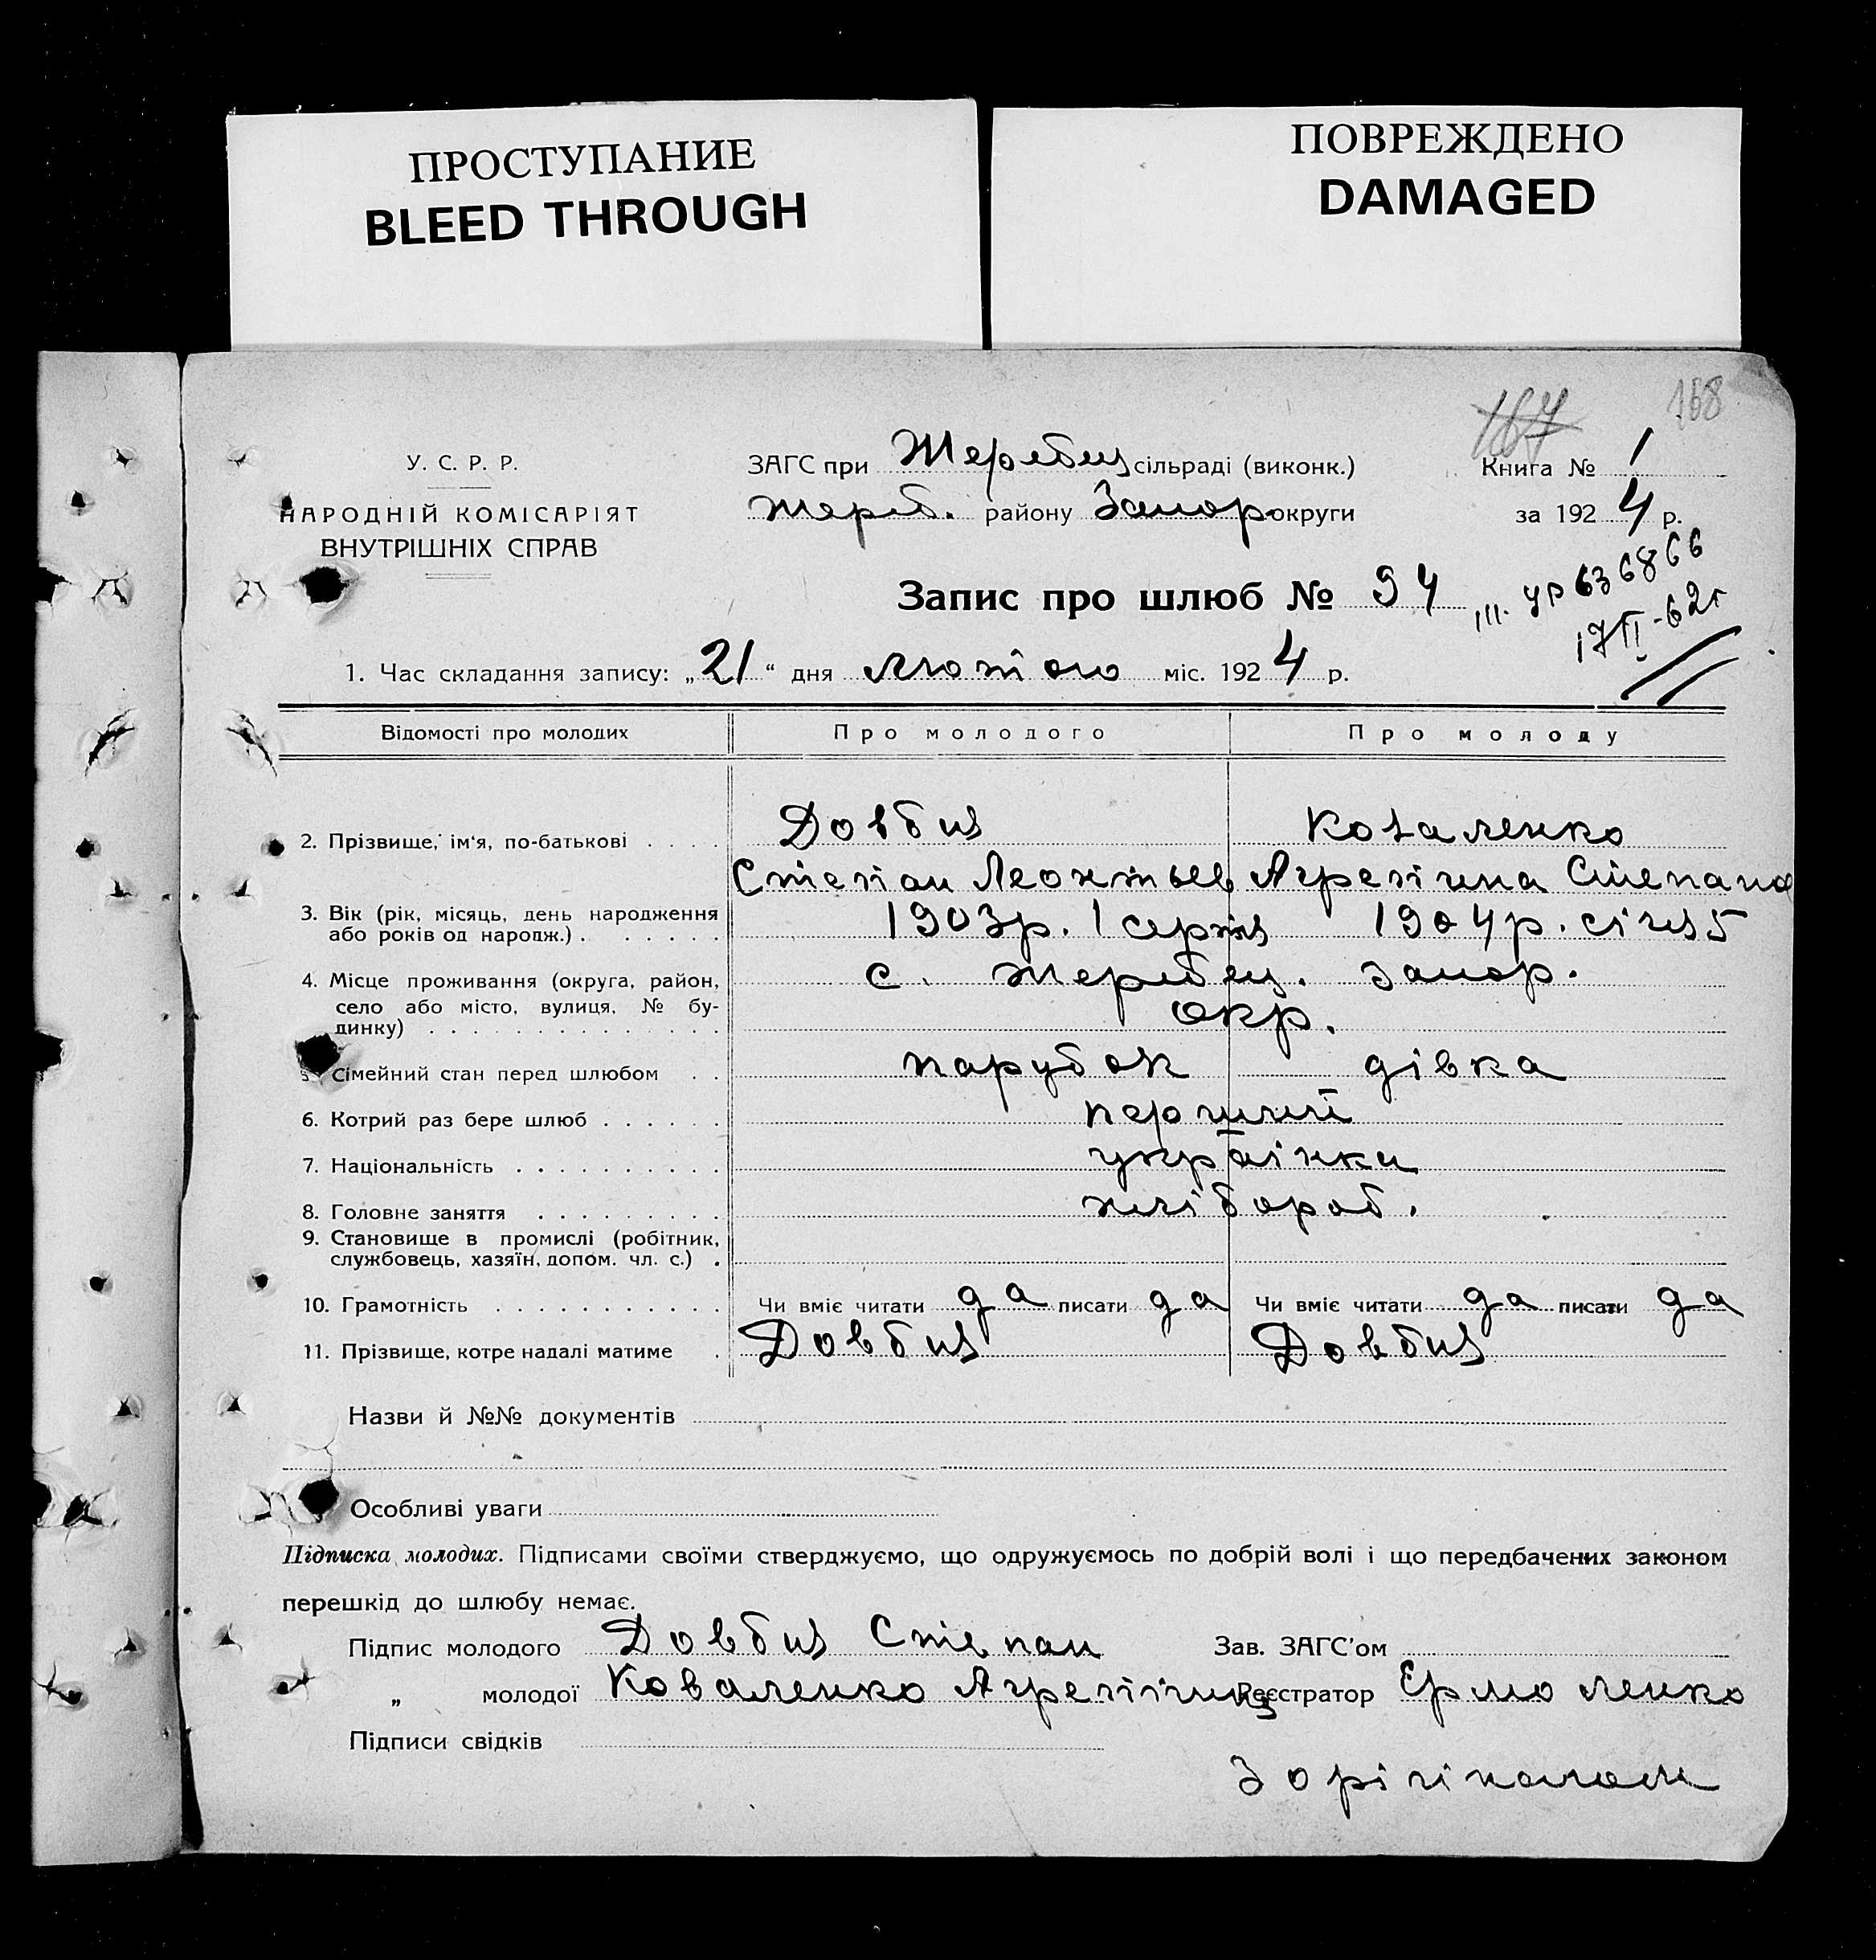 ПРОСТУПАНИЕ
BLEED THROUGH
ПОВРЕЖДЕНО
DAMAGED
167 168
У. С. Р. Р.
НАРОДНІЙ КОМІСАРІЯТ
ВНУТРІШНІХ СПРАВ
ЗАГС при Жеребец сільраді (виконк.)
жереб. району Запор. округи
Книга № 1
за 1924 р.
Запис про шлюб № 94
III. УР 636866
17 II-62 г
1. Час складання запису: „21“ дня лютого міс. 1924 р.
Відомості про молодих Про молодого Про молоду
2. Прізвище, ім'я, по-батькові . . . . Довбия Коваленко
Степан Леонтьев Агрепина Степана
3. Вік (рік, місяць, день народження
або років од народж.) . . . . . . 1903р. 1 серпня 1904р. січня 5
4. Місце проживання (округа, район,
село або місто, вулиця, № бу-
динку) . . . . . . . . . . . . . . с. жеребец. Запор.
окр.
5. Сімейний стан перед шлюбом . . парубок дівка
6. Котрий раз бере шлюб . . . . . . перший
7. Національність . . . . . . . . . . українки
8. Головне заняття . . . . . . . . . хлібороб.
9. Становище в промислі (робітник,
службовець, хазяїн, допом. чл. с.) .
10. Грамотність . . . . . . . . . . . Чи вміє читати да писати да Чи вміє читати да писати да
11. Прізвище, котре надалі матиме . Довбия Довбия
Назви й №№ документів
Особливі уваги
Підписка молодих. Підписами своїми стверджуємо, що одружуємось по добрій волі і що передбачених законом
перешкід до шлюбу немає.
Підпис молодого Довбия Степан Зав. ЗАГС'ом
„ молодої Коваленко Агрепіна Реєстратор Єрмоленко
Підписи свідків
З орігіналом